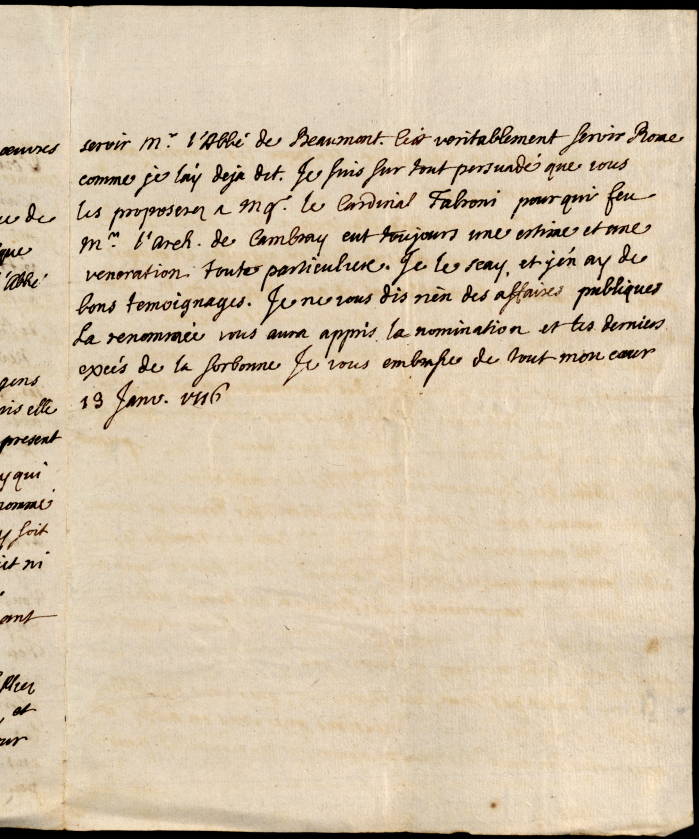 œuvres
ue de
que
l'abbé
gens
mis elle
present
y qui
nommé
y soit
ni
ant
et
our
servir Mr. l'Abbé de Beaumont. C'est veritablement servir Rome
comme je l'ay deja dit. Je suis sur tout persuadé que vous
les proposerez a Mgr. le Cardinal Fabroni pour qui feu
Mr. l'Arch. de Cambray eut toujours une estime et une
veneration toute particuliere. Je le scay, et j'en ay de
bons temoignages. Je ne vous dis rien des affaires publiques
La renommée vous aura appris la nomination et les derniers
excés de la Sorbonne Je vous embrasse de tout mon cœur
13 Janv. 1716